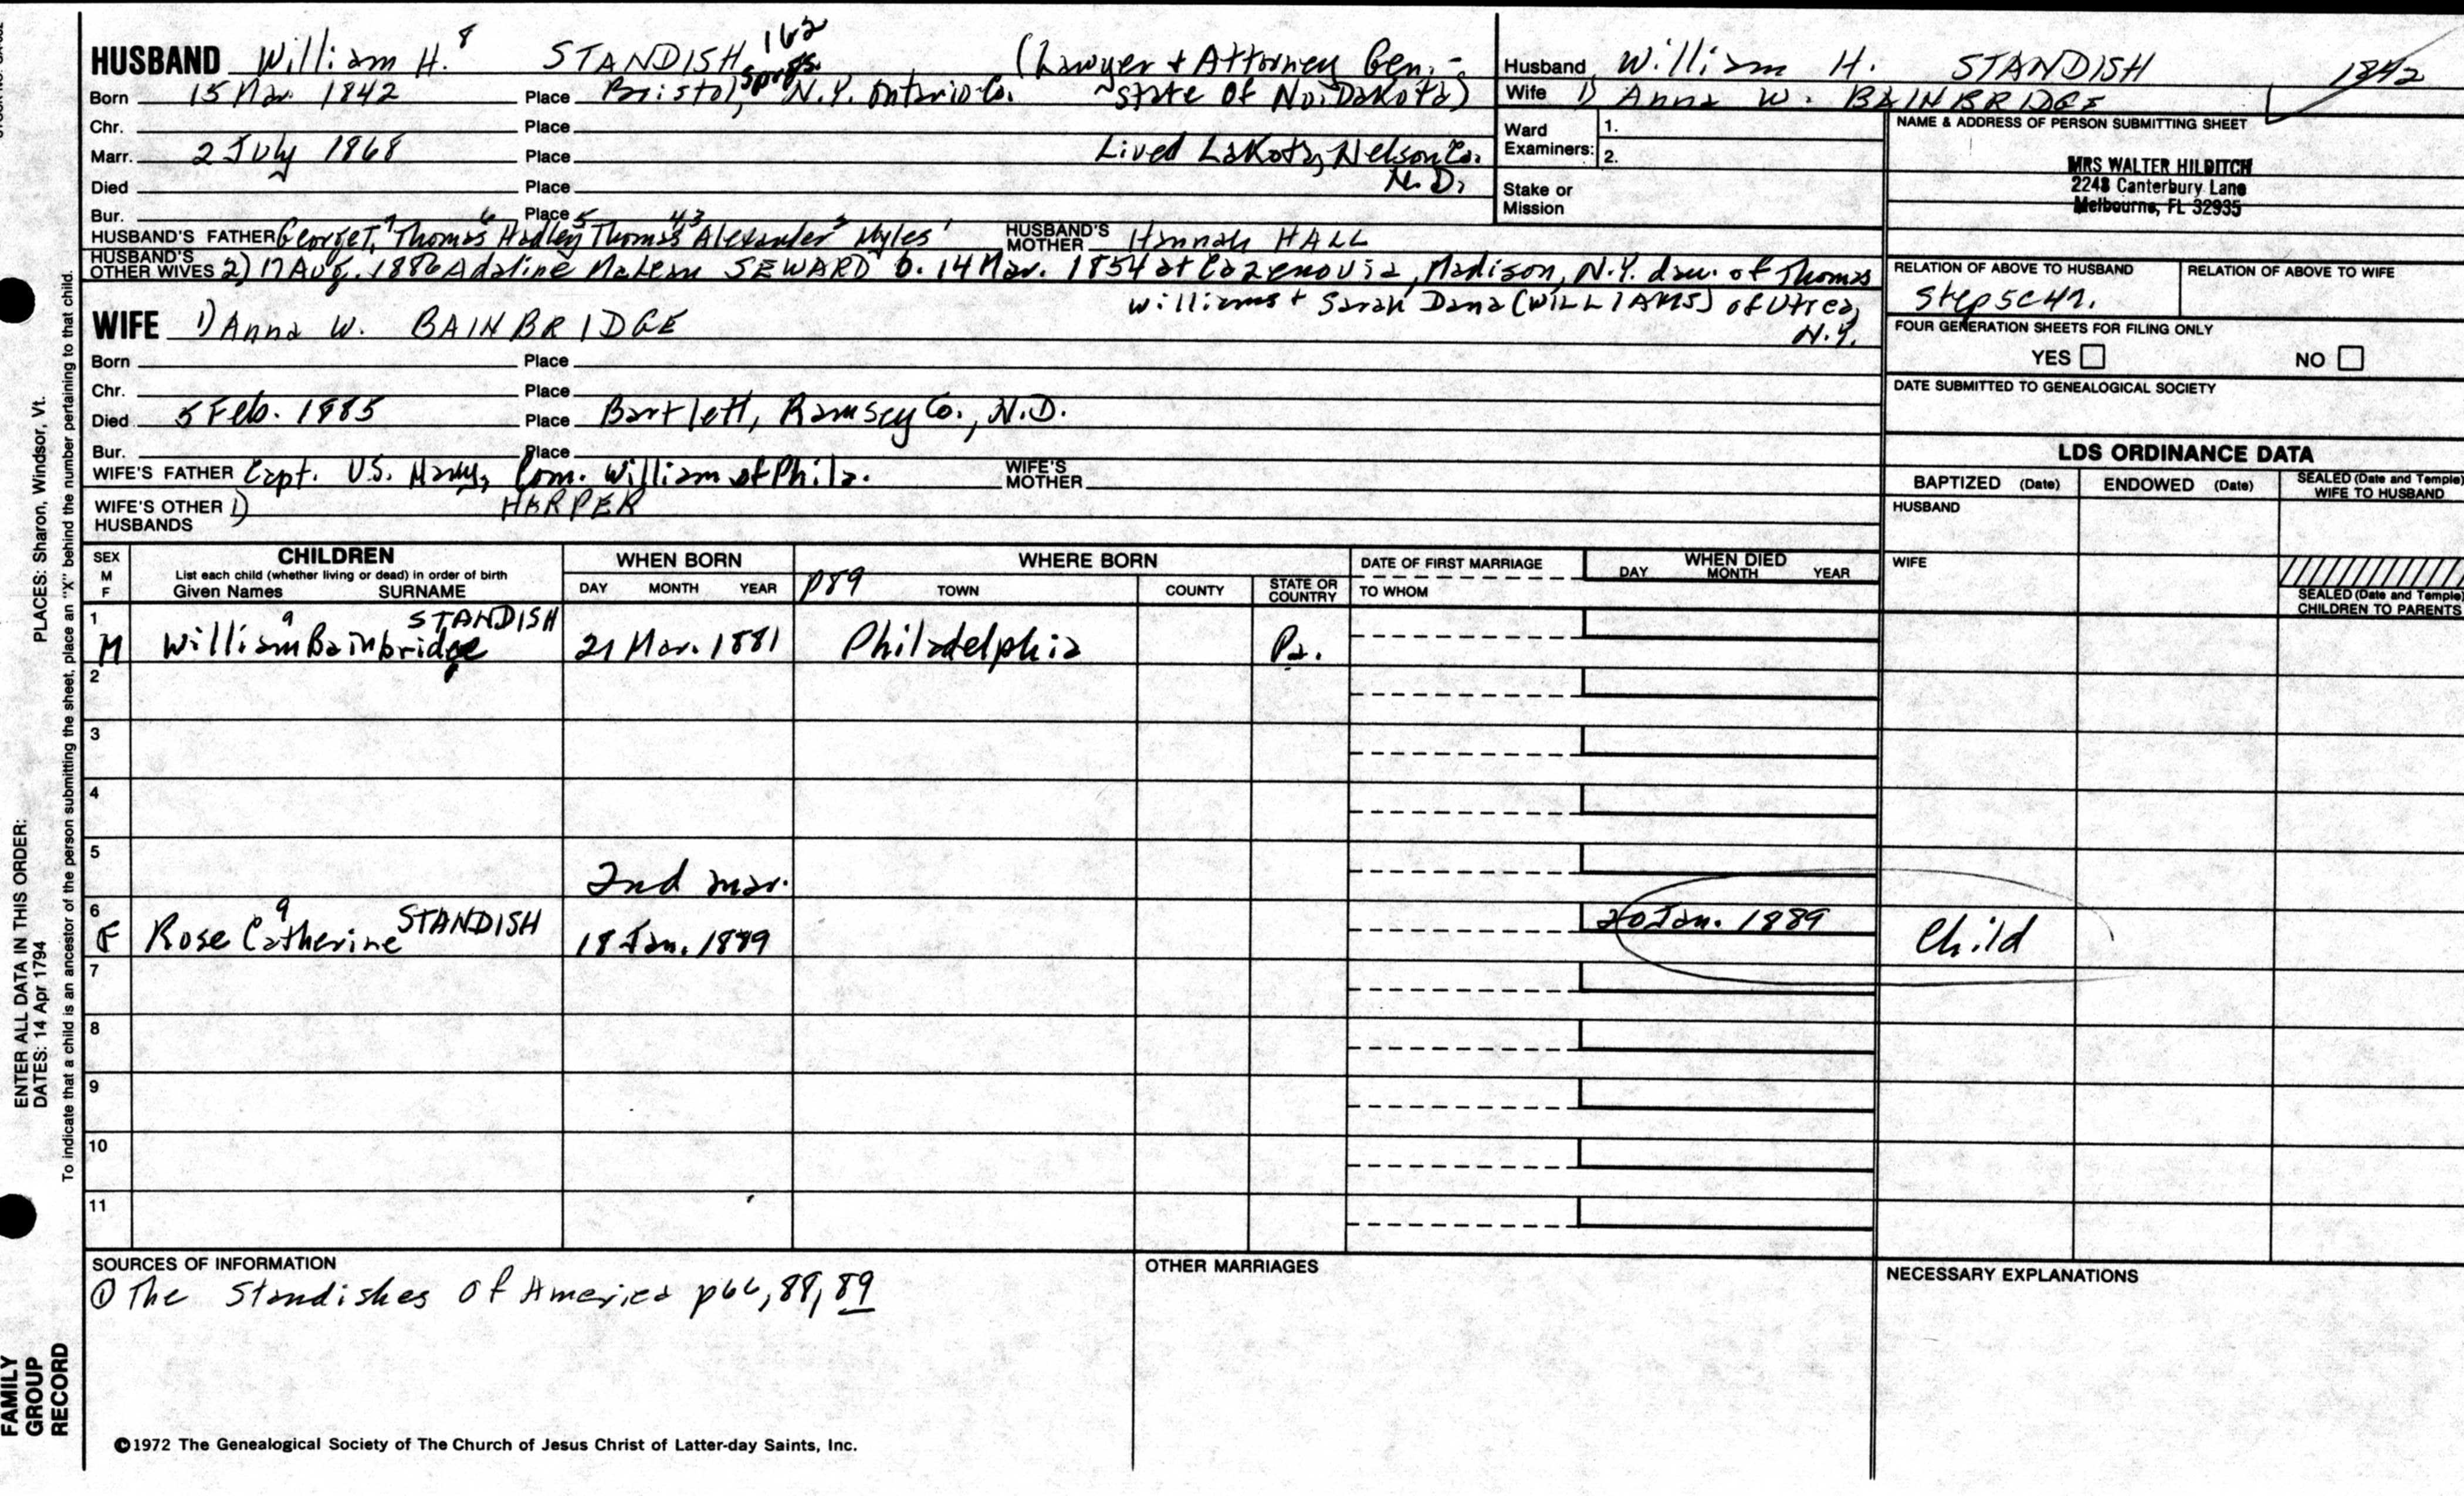 HUSBAND William H.⁸ STANDISH 162 (Lawyer + Attorney Gen. -
Born 15 Mar. 1842 Place Bristol, Sprgs. N.Y. Ontario Co. State of No. Dakota)
Chr. Place
Marr. 2 July 1868 Place Lived Lakota, Nelson Co.
N.D.
Died Place
Bur. Place
HUSBAND'S FATHER George T.⁷ Thomas⁶ Hadley Thomas⁵ Alexander Myles¹ HUSBAND'S MOTHER Hannah HALL
HUSBAND'S OTHER WIVES 2) 17 Aug. 1886 Adaline McLean SEWARD b. 14 Mar. 1854 at Cazenovia, Madison, N.Y. dau. of Thomas
Williams + Sarah Dana (WILLIAMS) of Utica,
N.Y.
WIFE 1) Anna W. BAINBRIDGE
Born Place
Chr. Place
Died 5 Feb. 1885 Place Bartlett, Ramsey Co., N.D.
Bur. Place
WIFE'S FATHER Capt. U.S. Navy, Com. William of Phila. WIFE'S MOTHER
WIFE'S OTHER HUSBANDS 1) HARPER
Husband William H. STANDISH 1842
Wife 1) Anna W. BAINBRIDGE
Ward Examiners: 1.
2.
Stake or Mission
NAME & ADDRESS OF PERSON SUBMITTING SHEET
MRS WALTER HILDITCH
2248 Canterbury Lane
Melbourne, FL 32935
RELATION OF ABOVE TO HUSBAND RELATION OF ABOVE TO WIFE
FOUR GENERATION SHEETS FOR FILING ONLY
YES NO
DATE SUBMITTED TO GENEALOGICAL SOCIETY
LDS ORDINANCE DATA
BAPTIZED (Date) ENDOWED (Date) SEALED (Date and Temple) WIFE TO HUSBAND
HUSBAND
WIFE
SEALED (Date and Temple) CHILDREN TO PARENTS
SEX M F CHILDREN WHEN BORN WHERE BORN DATE OF FIRST MARRIAGE WHEN DIED
List each child (whether living or dead) in order of birth
Given Names SURNAME DAY MONTH YEAR p89 TOWN COUNTY STATE OR COUNTRY TO WHOM DAY MONTH YEAR
1 M William Bainbridge⁹ STANDISH 21 Mar. 1881 Philadelphia Pa.
2
3
4
5 2nd mar.
6 F Rose Catherine⁹ STANDISH 18 Jan. 1889 20 Jan. 1889 Child
7
8
9
10
11
SOURCES OF INFORMATION
① The Standishes of America p66, 88, 89
OTHER MARRIAGES
NECESSARY EXPLANATIONS
©1972 The Genealogical Society of The Church of Jesus Christ of Latter-day Saints, Inc.
ENTER ALL DATA IN THIS ORDER:
DATES: 14 Apr 1794 PLACES: Sharon, Windsor, Vt.
To indicate that a child is an ancestor of the person submitting the sheet, place an "X" behind the number pertaining to that child.
FAMILY
GROUP
RECORD